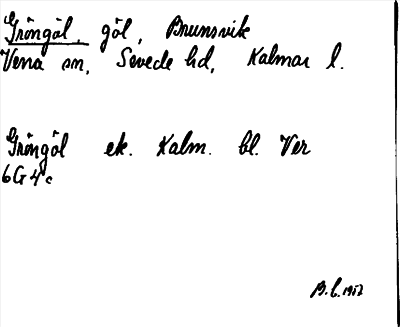 Gröngöl, göl, Brunsvik
Vena sn, Sevede hd, Kalmar l.
Gröngöl ek. Kalm. bl. Ver
6G4c
B.L. 1952